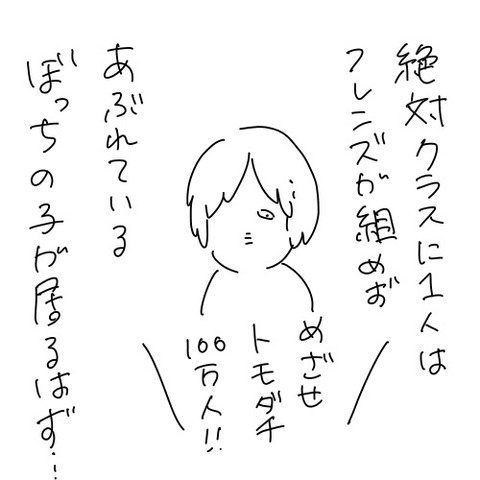 絶対クラスに1人は
フレンズが組めず
あぶれている
ぼっちの子が居るはず…
めざせ
トモダチ
100万人!!